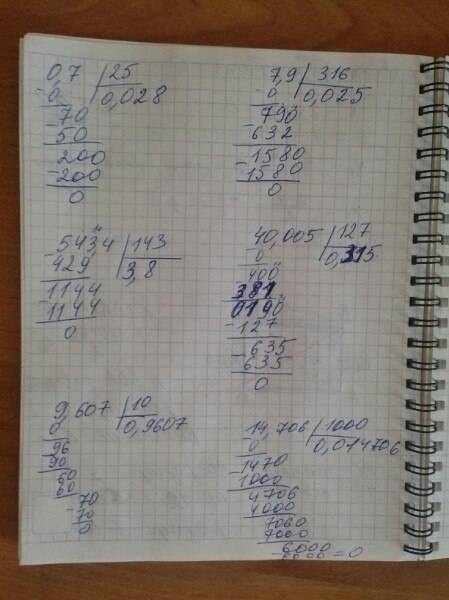 0,7 | 25
-0 | 0,028
-70
50
200
-200
0
7,9 | 316
-0 | 0,025
790
-632
-1580
1580
0
-543,4 | 143
429 | 3,8
1144
-1144
0
40,005 | 127
-0 | 0,315
400
381
0190
-127
-635
635
0
9,607 | 10
0 | 0,9607
96
90
60
60
-70
70
0
14,706 | 1000
-0 | 0,014706
-1470
1000
4706
4000
7060
7000
-6000
6000 = 0